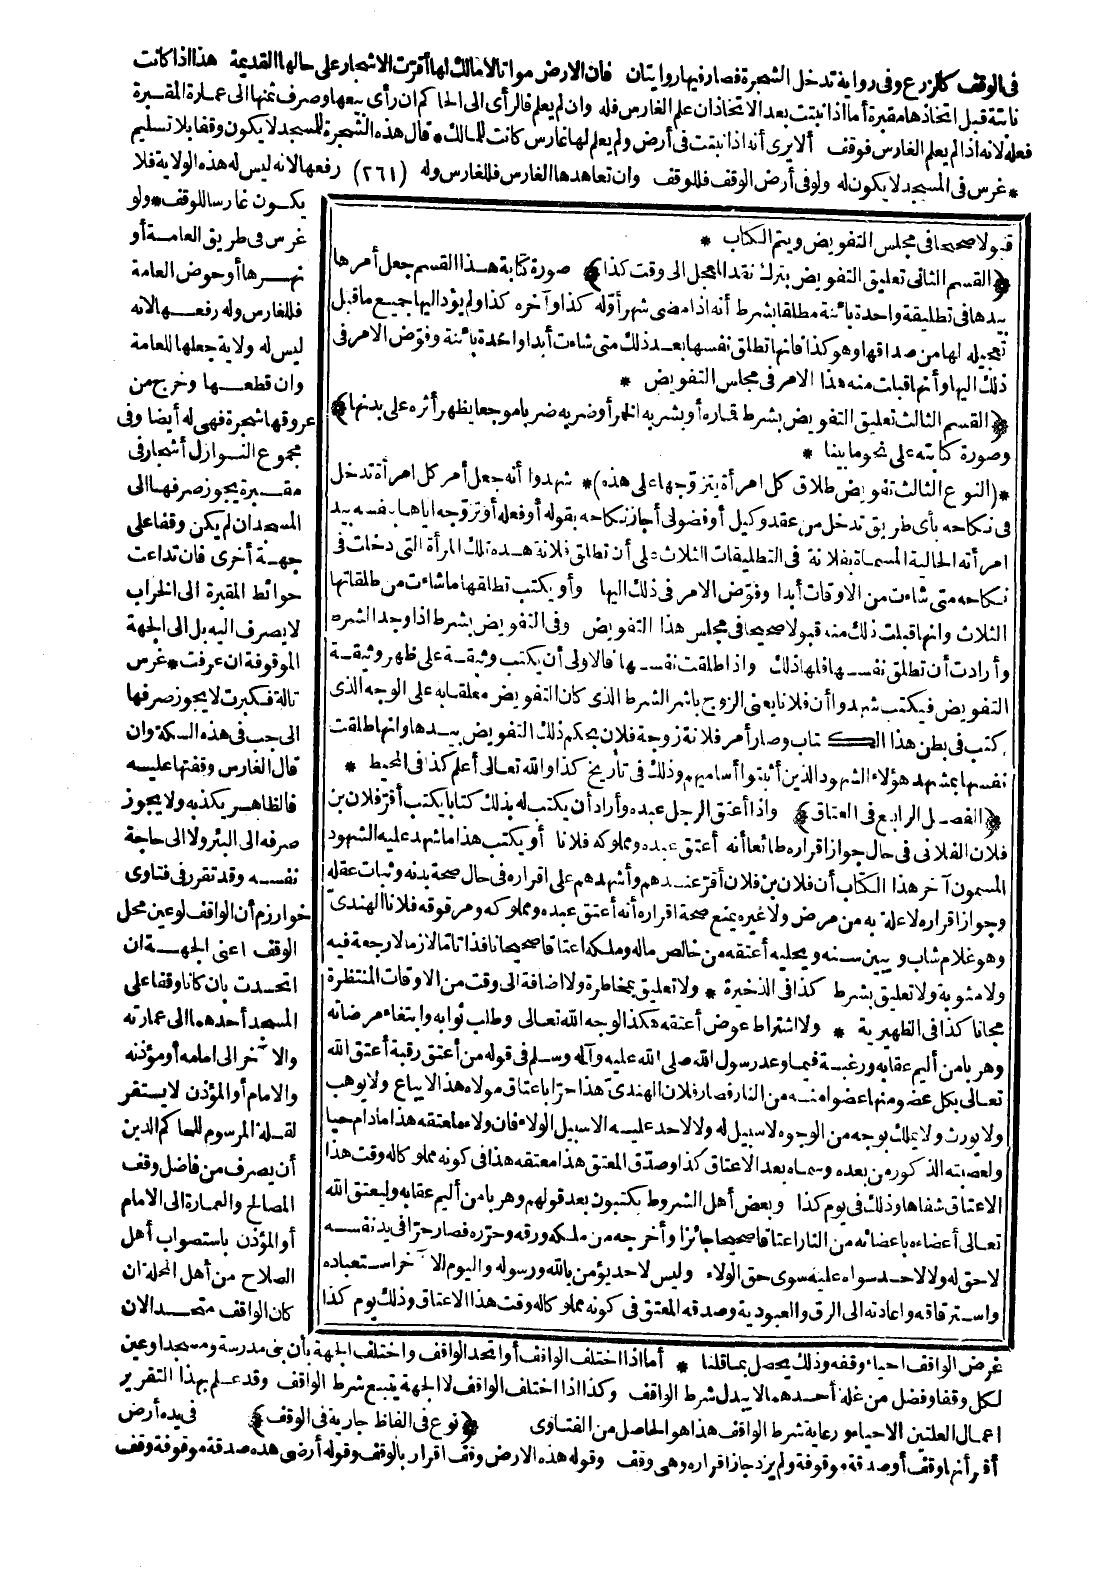 فى الوقف كالزرع وفى رواية تدخل الشجرة فصار فيها روايتان فان الارض مواتا لامالك لها أقرت الاشجار على حالها القديمة هذا اذا كانت
نابتة قبل اتخاذها مقبرة أما اذا نبتت بعد الاتخاذ ان علم الغارس فله وان لم يعلم فالرأى الى الحاكم ان رأى بيعها وصرف ثمنها الى عمارة المقبرة
فعله لانه اذا لم يعلم الغارس فوقف ألا يرى أنه اذا نبتت فى أرض ولم يعلم لها غارس كانت للمالك * قال هذه الشجرة للمسجد لا يكون وقفا بلا تسليم
* غرس فى المسجد لا يكون له ولو فى أرض الوقف فللوقف وان تعاهدها الغارس فللغارس وله (٢٦١) رفعها لانه ليس له هذه الولاية فلا
يكون غارسا للوقف * ولو
غرس فى طريق العامة أو
نهرها أو حوض العامة
فللغارس وله رفعها لانه
ليس له ولاية جعلها للعامة
وان قطعها وخرج من
عروقها شجرة فهى له أيضا وفى
مجموع النوازل أشجار فى
مقبرة يجوز صرفها الى
المسجد ان لم يكن وقفا على
جهة أخرى فان تداعت
حوائط المقبرة الى الخراب
لا يصرف اليه بل الى الجهة
الموقوفة ان عرفت * غرس
تالة فكبرت لا يجوز صرفها
الى جب فى هذه السكة وان
قال الغارس وقفتها عليه
فالظاهر يكذبه ولا يجوز
صرفه الى البئر ولا الى حاجة
نفسه وقد تقرر فى فتاوى
خوارزم أن الواقف لو عين محل
الوقف اعنى الجهة ان
اتحدت بان كانا وقفا على
المسجد أحدهما الى عمارته
والآخر الى امامه أو مؤذنه
والامام أو المؤذن لا يستقر
لقلة المرسوم للحاكم الدين
أن يصرف من فاضل وقف
المصالح والعمارة الى الامام
أو المؤذن باستصواب أهل
الصلاح من أهل المحلة ان
كان الواقف متحد الان
قبولا صحيحا فى مجلس التفويض ويتم الكتاب *
﴿القسم الثانى تعليق التفويض بترك نقد المعجل الى وقت كذا﴾ صورة كتابة هذا القسم جعل أمرها
بيدها فى تطليقة واحدة بائنة مطلقا بشرط أنه اذا مضى شهر أوله كذا وآخره كذا ولم يؤد اليها جميع ما قبل
تعجيله لها من صداقها وهو كذا فانها تطلق نفسها بعد ذلك متى شاءت أبدا واحدة بائنة وفوض الامر فى
ذلك اليها وأنها قبلت منه هذا الامر فى مجلس التفويض *
﴿القسم الثالث تعليق التفويض بشرط قماره أو بشربه الخمر أو ضربه ضربا موجعا يظهر أثره على بدنها﴾
وصورة كتابته على نحو ما بينا *
* (النوع الثالث تفويض طلاق كل امرأة يتزوجها على هذه) * شهدوا أنه جعل أمر كل امرأة تدخل
فى نكاحه بأى طريق تدخل من عقد وكيل أو فضولى أجاز نكاحه بقوله أو فعله أو تزوجه اياها بنفسه بيد
امرأته الحالية المسماة بفلانة فى التطليقات الثلاث على أن تطلق فلانة هذه تلك المرأة التى دخلت فى
نكاحه متى شاءت من الاوقات أبدا وفوض الامر فى ذلك اليها وأو يكتب تطلقها ما شاءت من طلقاتها
الثلاث وانها قبلت ذلك منه قبولا صحيحا فى مجلس هذا التفويض وفى التفويض بشرط اذا وجد الشرط
وأرادت أن تطلق نفسها فلها ذلك واذا طلقت نفسها فالاولى أن يكتب وثيقة على ظهر وثيقة
التفويض فيكتب شهدوا أن فلانا يعنى الزوج باشر الشرط الذى كان التفويض معلقا به على الوجه الذى
كتب فى بطن هذا الكتاب وصار أمر فلانة زوجة فلان بحكم ذلك التفويض بيدها وانها طلقت
نفسها بمشهد هؤلاء الشهود الذين أثبتوا أساميهم وذلك فى تأريخ كذا والله تعالى أعلم كذا فى المحيط *
﴿الفصل الرابع فى العتاق﴾ واذا أعتق الرجل عبده وأراد أن يكتب له بذلك كتابا يكتب أقر فلان بن
فلان الفلانى فى حال جواز اقراره طائعا أنه أعتق عبده ومملوكه فلانا أو يكتب هذا ما شهد عليه الشهود
المسمون آخر هذا الكتاب أن فلان بن فلان أقر عندهم وأشهدهم على اقراره فى حال صحة بدنه وثبات عقله
وجواز اقراره لا علة به من مرض ولا غيره يمنع صحة اقراره أنه أعتق عبده ومملوكه ومرقوقه فلانا الهندى
وهو غلام شاب ويبين سنه ويحليه أعتقه من خالص ماله وملكه اعتاقا صحيحا نافذا تاما لازما لا رجعة فيه
ولا مثنوية ولا تعليق بشرط كذا فى الذخيرة * ولا تعليق بمخاطرة ولا اضافة الى وقت من الاوقات المنتظرة
مجانا كذا فى الظهيرية * ولا اشتراط عوض أعتقه هكذا لوجه الله تعالى وطلب ثوابه وابتغاء مرضاته
وهربا من أليم عقابه ورغبة فيما وعد رسول الله صلى الله عليه وآله وسلم فى قوله من أعتق رقبة أعتق الله
تعالى بكل عضو منها عضوا منه من النار فصار فلان الهندى هذا حرا باعتاق مولاه هذا لا يباع ولا يوهب
ولا يورث ولا يملك بوجه من الوجوه لا سبيل له ولا لاحد عليه الا سبيل الولاء فان ولاءه لمعتقه هذا مادام حيا
ولعصبته الذكور من بعده وسماه بعد الاعتاق كذا وصدق المعتق هذا معتقه هذا فى كونه مملوكا له وقت هذا
الاعتاق شفاها وذلك فى يوم كذا وبعض أهل الشروط يكتبون بعد قولهم وهربا من أليم عقابه وليعتق الله
تعالى أعضاءه باعضائه من النار اعتاقا صحيحا جائزا وأخرجه من ملكه ورقه وحرره فصار حرا فى يد نفسه
لا حق له ولا لاحد سواه عليه سوى حق الولاء وليس لاحد يؤمن بالله ورسوله واليوم الآخر استعباده
واسترقاقه واعادته الى الرق والعبودية وصدقه المعتق فى كونه مملوكا له وقت هذا الاعتاق وذلك يوم كذا
غرض الواقف احياء وقفه وذلك يحصل بما قلنا * أما اذا اختلف الواقف أو اتحد الواقف واختلف الجهة بأن بنى مدرسة ومسجدا وعين
لكل وقفا وفضل من غلة أحدهما لا يبدل شرط الواقف وكذا اذا اختلف الواقف لا الجهة يتبع شرط الواقف وقد علم بهذا التقرير
اعمال العلتين الاحياء ورعاية شرط الواقف هذا هو الحاصل من الفتاوى ﴿نوع فى الفاظ جارية فى الوقف﴾ فى يده أرض
أقر أنها وقف أو صدقة موقوفة ولم يزد جاز اقراره وهى وقف وقوله هذه الارض وقف اقرار بالوقف وقوله أرضى هذه صدقة موقوفة وقف